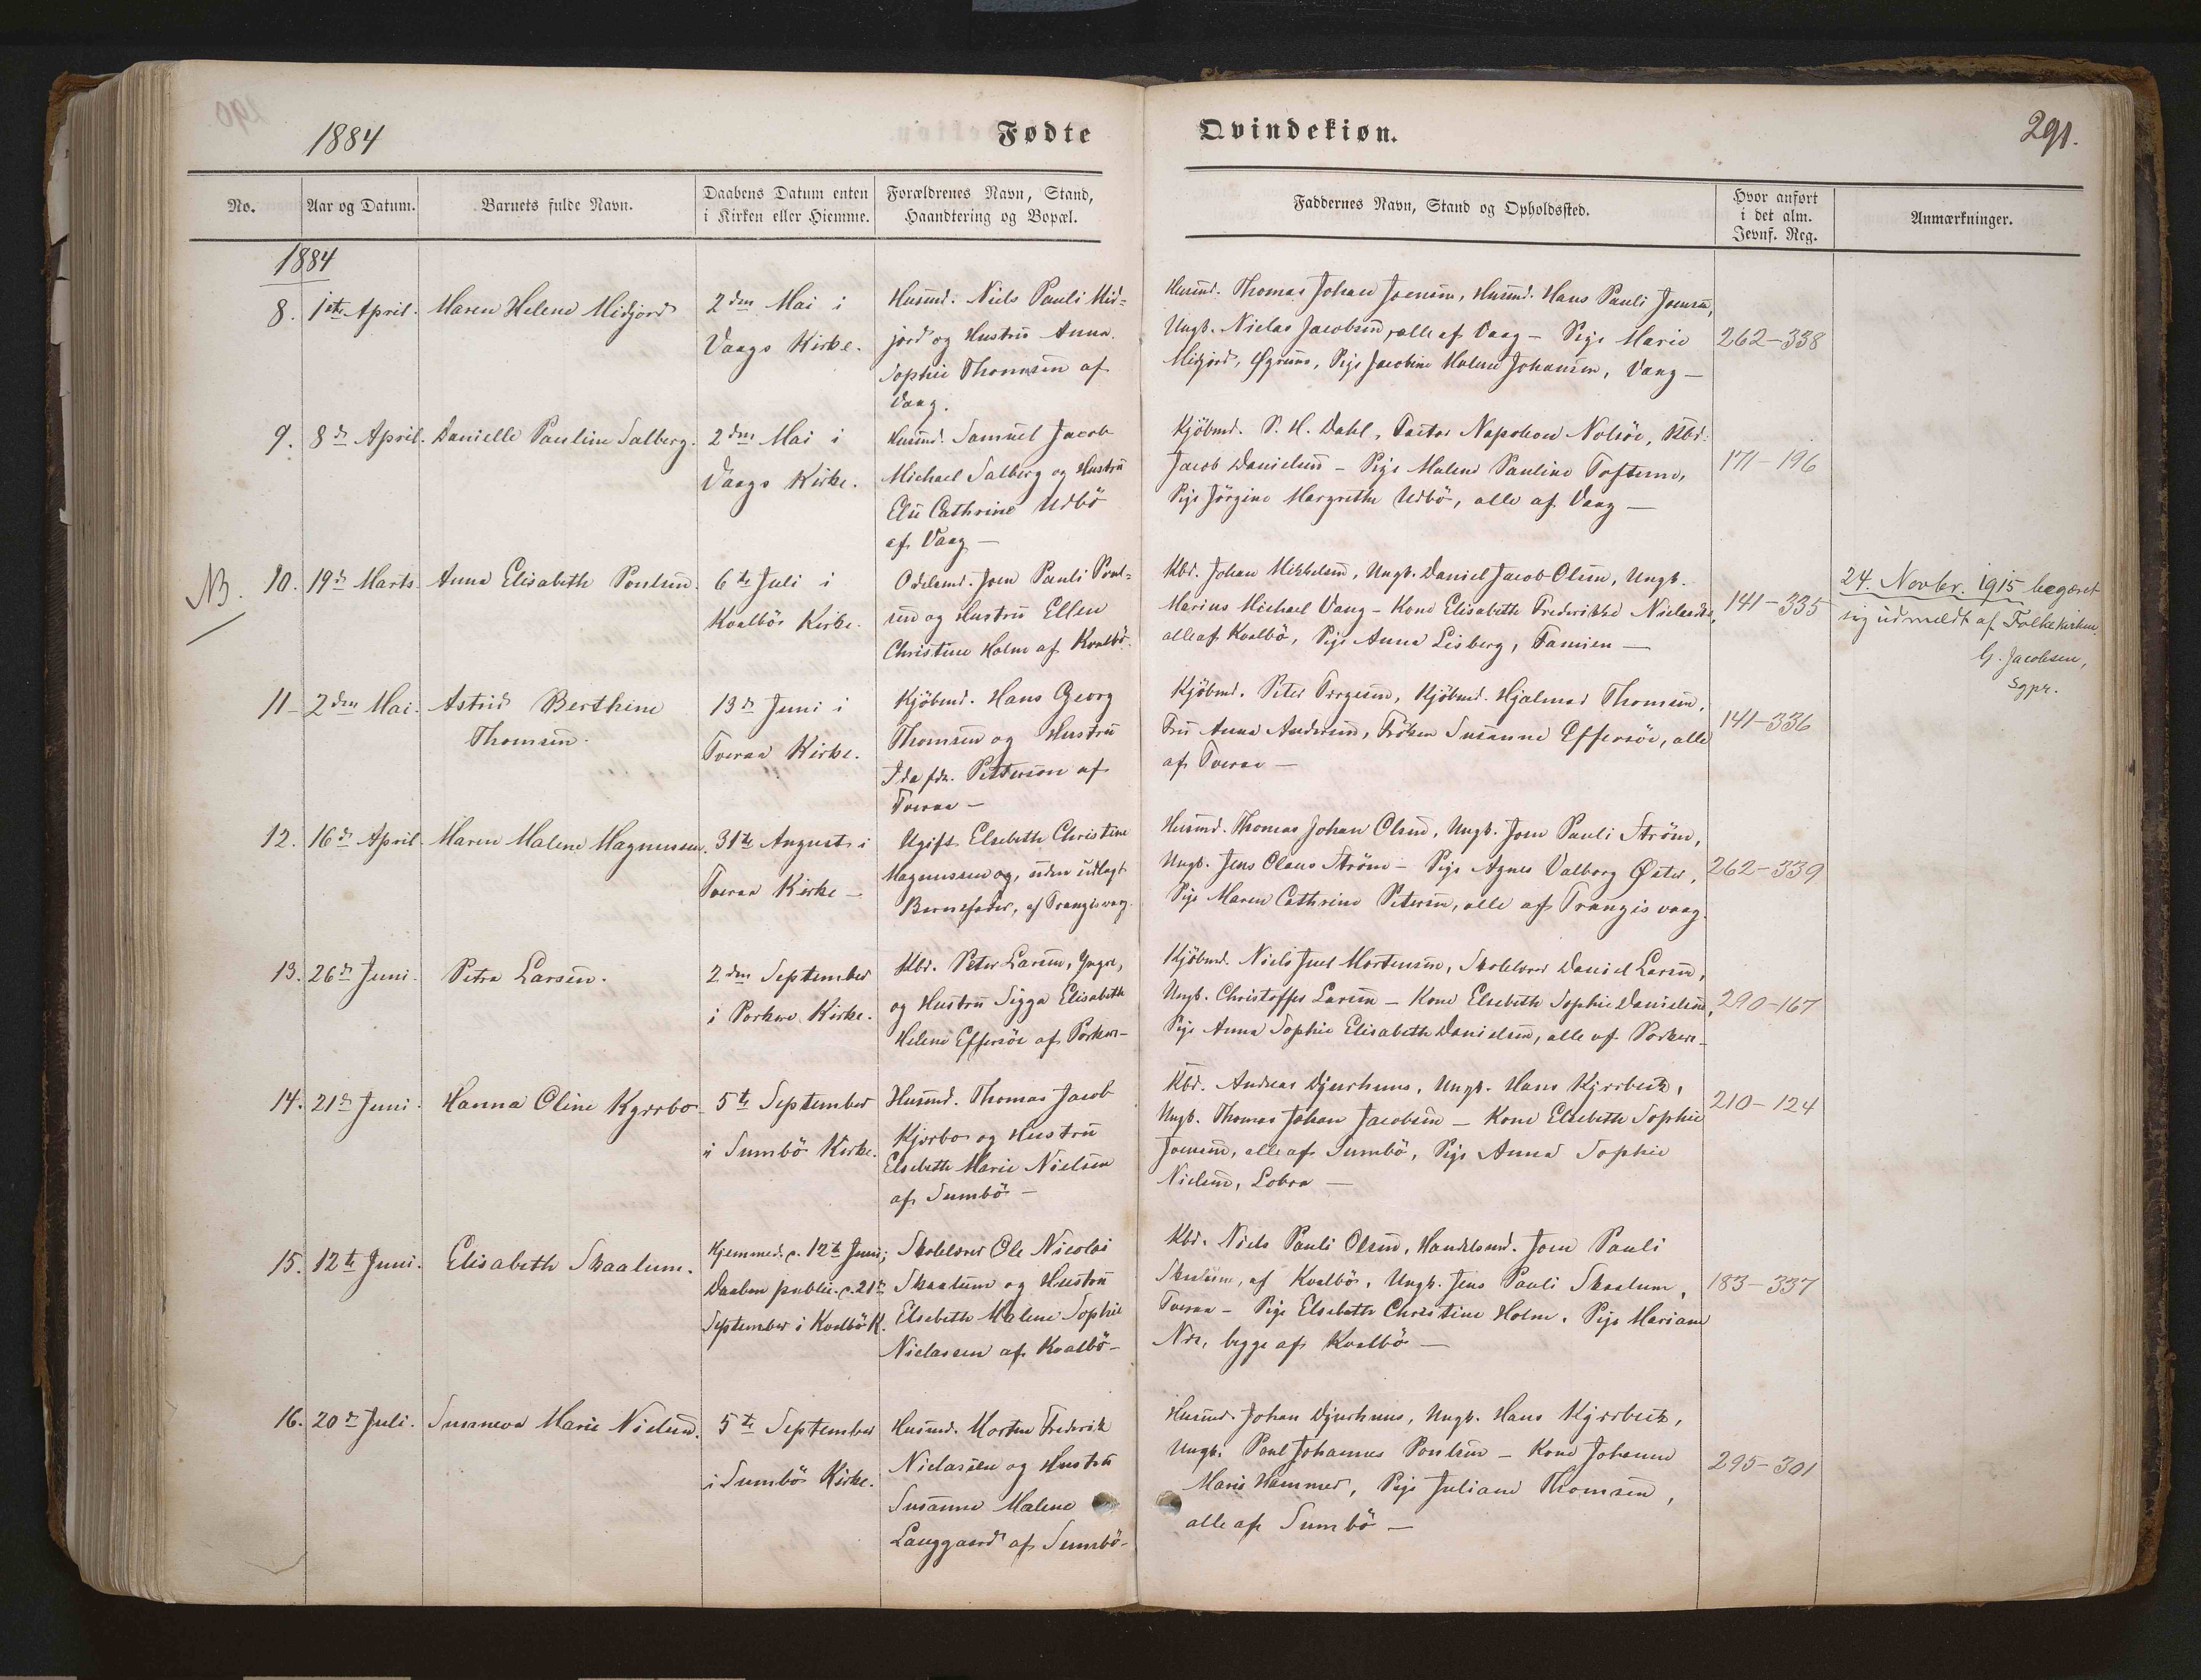 1884
Fødte
Qvindekiøn.
291.
No.
Aar og Datum.
Barnets fulde Navn.
Daabens Datum enten
i Kirken eller Hiemme.
Forældrenes Navn, Stand,
Haandtering og Bopæl.
Faddernes Navn, Stand og Opholdssted.
Hvor anført
i det alm.
Jevnf. Reg.
Anmærkninger.
1884
8.
1ste April.
Maren Helene Midjord
2den Mai i
Vaags Kirke.
Husmd. Niels Pauli Mid=
jord og Hustru Anna
Sophie Thomsen af
Vaag.
Husmd. Thomas Johan Joensen, Husmd. Hans Pauli Joensen,
Ungk. Niclas Jacobsen, alle af Vaag – Pige Marie
Midjord, Øgrum, Pige Jacobine Malene Johansen, Vaag –
262–338
9.
8de April.
Danielle Pauline Salberg.
2den Mai i
Vaags Kirke.
Husmd. Samuel Jacob
Michael Salberg og Hustru
Elie Cathrine Udbö
af Vaag –
Kjöbmd. P. H. Dahl, Factor Napoleon Nolsöe, Kbd.
Jacob Danielsen – Pige Malene Pauline Toftum,
Pige Jörgine Margrethe Udbö, alle af Vaag –
171–196
NB.
10.
19de Marts
Anna Elisabeth Poulsen.
6te Juli i
Kvalbö Kirke.
Odelsmd. Joen Pauli Poul=
sen og Hustru Ellen
Christine Holm af Kvalbö.
Kbd. Johan Mikkelsen, Ungk. Daniel Jacob Olsen, Ungk.
Marius Michael Vang – Kone Elisabeth Frederikke Nielsen,
alle af Kvalbö, Pige Anna Lisberg, Famien –
141–335
24. Novbr. 1915 begæret
sig udmeldt af Folkekirken.
G. Jacobsen,
Sgpr.
11–
2den Mai.
Astrid Berthine
Thomsen.
13de Juni i
Tveraa Kirke.
Kjöbmd. Hans Georg
Thomsen og Hustru
Ida fdt. Petterson af
Tveraa –
Kjöbmd. Peter, Kjöbmd. Hjalmar Thomsen,
Fru Anna Andersen, Fröken Susanne Effersöe, alle
af Tveraa –
141–336
12.
16de April.
Maren Malene Magnussen.
31te August i
Tveraa Kirke –
Ugift Elsebeth Christine
Magnussen og, uden udlagt
Barnefader, af Trangisvaag.
Husmd. Thomas Johan Olsen, Ungk. Joen Pauli Ström,
Ungk. Jens Olaus Ström – Pige Agnes Valborg Øster,
Pige Maren Cathrine Petersen, alle af Trangisvaag.
262–339
13.
26de Juni.
Petra Larsen.
2den September
i Porkere Kirke.
Kbd. Peter Larsen, Yngre,
og Hustru Sigga Elisabeth
Helene Effersöe af Porkere–
Kjöbmd. Niels Juel Mortensen, Skolelærer Daniel Larsen,
Ungk. Christoffer Larsen – Kone Elsebeth Sophie Danielsen,
Pige Anna Sophie Elisabeth Danielsen, alle af Porkere–
290–167
14.
21de Juni.
Hanna Oline Kyrrbo–
5te September
i Sumbö Kirke.
Husmd. Thomas Jacob
Kjærbo og Hustru
Elsebeth Marie Nielsen
af Sumbö –
Kbd. Andreas Djurhuus, Ungk. Hans Kjærbeck,
Ungk. Thomas Johan Jacobsen – Kone Elsebeth Sophie
Joensen, alle af Sumbö, Pige Anna Sophie
Nielsen, Lobra –
210–124
15.
12te Juni.
Elisabeth Skaalum.
Hjemmed. d. 12te Juni;
Daaben public. d. 21de
September i Kvalbö K.
Skolelærer Ole Nicolai
Skaalum og Hustru
Elsebeth Malene Sophie
Niclassen af Kvalbö–
Kbd. Niels Pauli Olsen, Handelsmd. Joen Pauli
Skaalum, af Kvalbö, Ungk. Jens Pauli Skaalum,
Tveraa – Pige Elsebeth Christine Holm, Pige Mariane
begge af Kvalbö –
183–337
16.
20de Juli.
Susanna Marie Nielsen.
5te September
i Sumbö Kirke.
Husmd. Morten Frederik
Niclassen og Hustru
Susanne Malene
Langgaard af Sumbö–
Husmd. Johan Djurhuus, Ungk. Hans Kjærbeck,
Ungk. Poul Johannes Poulsen – Kone Johanne
Marie Hammer, Pige Juliane Thomsen,
alle af Sumbö –
295–301